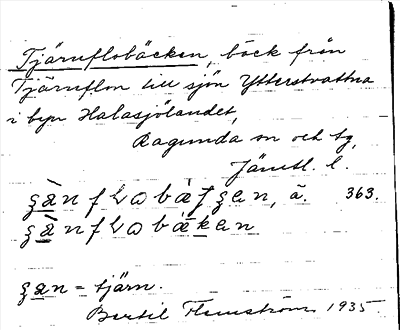 Tjärnflobäcken, bäck från
Tjärnflon till sjön Ytterstvattna
i byn Halasjölandet,
Ragunda sn och tg,
Jämtl. l.
363.
ʂàn fLo bá ʃʂen, ã.
ʂàn fLo bákan
ʂan = tjärn.
Bertil Flemström 1935.